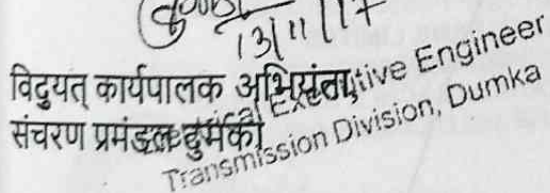 13/11/17
विदुयत् कार्यपालक अभियंता,
संचरण प्रमंडल दुमका
Executive Engineer
Transmission Division, Dumka